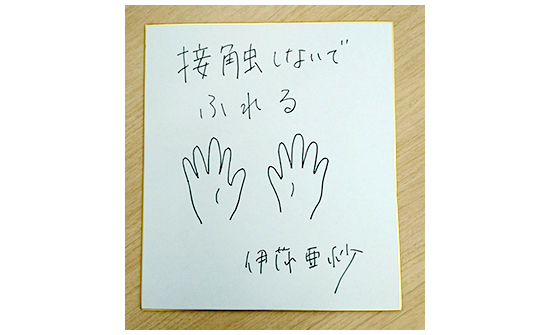 接触しないで
ふれる
伊藤亜紗